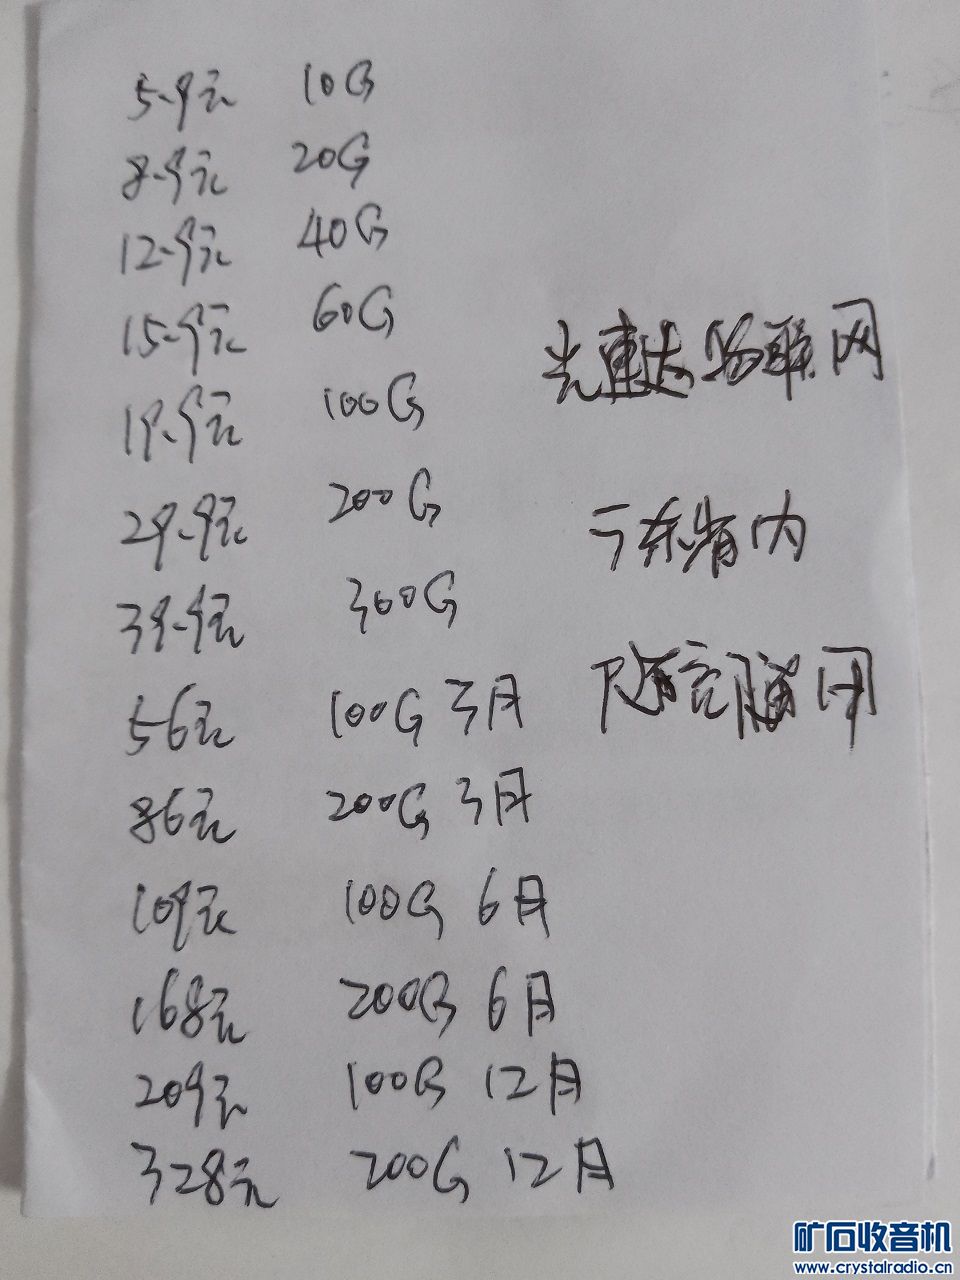 5.9元 10G
8.9元 20G
12.9元 40G
15.9元 60G
19.9元 100G
29.9元 200G
39.9元 300G
56元 100G 3月
86元 200G 3月
109元 100G 6月
168元 200G 6月
209元 100G 12月
328元 200G 12月
物联网
广东省内
随意
矿石收音机
www.crystalradio.cn